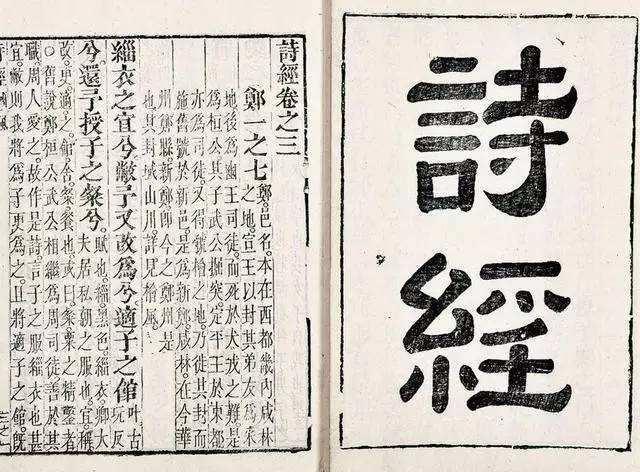 詩經
詩經卷之三
鄭一之七
鄭邑名。本在西都畿內咸林
之地。宣王以封其弟友為采
地後為幽王司徒。而死於犬戎之難。是
為桓公。其子武公掘突定平王於東都
亦為司徒。又得虢檜之地。乃徙其封。而
施舊號於新邑。是為新鄭。咸林在今華
州鄭縣。新鄭卽今之鄭州是
也。其封域山川詳見檜風
緇衣之宜兮。敝予又改為兮。適子之館
叶古
玩反
兮。還予授子之粲兮。
賦也。緇黑色。緇衣。卿大
夫居私朝之服也。宜。稱
改。更。適。之。館。舍。粲。餐也。或曰粲粟之精鑿者
○舊說鄭桓公武公相繼為周司徒善於其
職。周人愛之。故作是詩。言子之服緇衣也甚
宜。敝則我將為子更為之。且將適子之館。旣